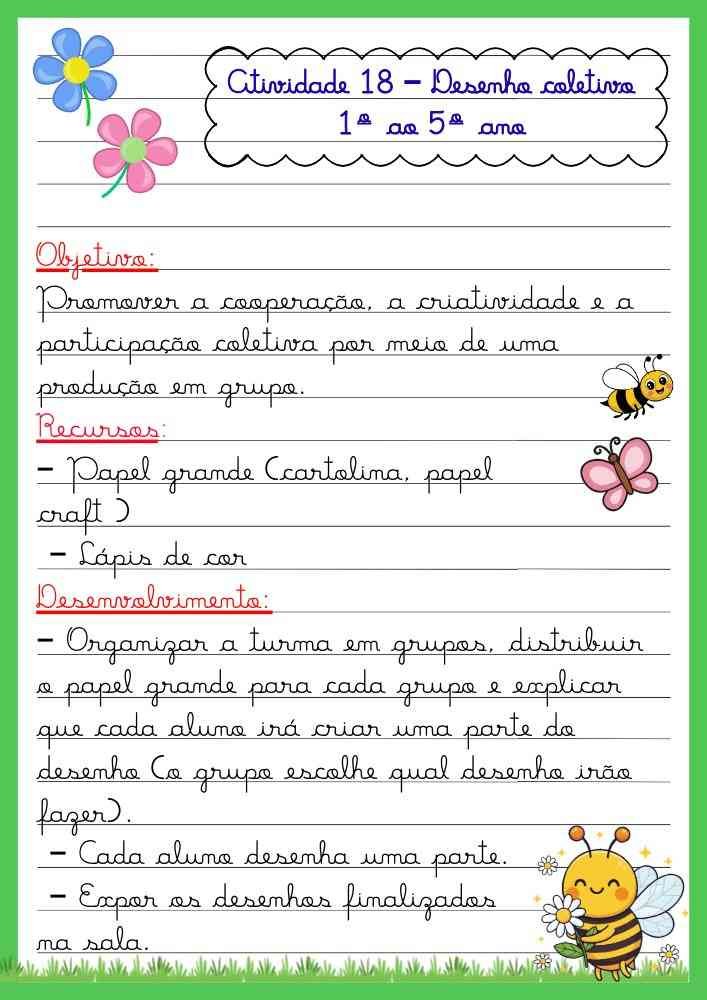 Atividade 18 - Desenho coletivo
1º ao 5º ano
Objetivo:
Promover a cooperação, a criatividade e a
participação coletiva por meio de uma
produção em grupo.
Recursos:
- Papel grande (cartolina, papel
craft )
- Lápis de cor
Desenvolvimento:
- Organizar a turma em grupos, distribuir
o papel grande para cada grupo e explicar
que cada aluno irá criar uma parte do
desenho (o grupo escolhe qual desenho irão
fazer).
- Cada aluno desenha uma parte.
- Expor os desenhos finalizados
na sala.